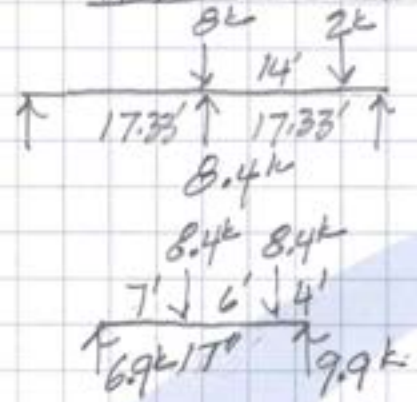 8k 2k
14'
17.33' 17.33'
8.4k
8.4k 8.4k
7' 6' 4'
6.9k 17' 9.9k